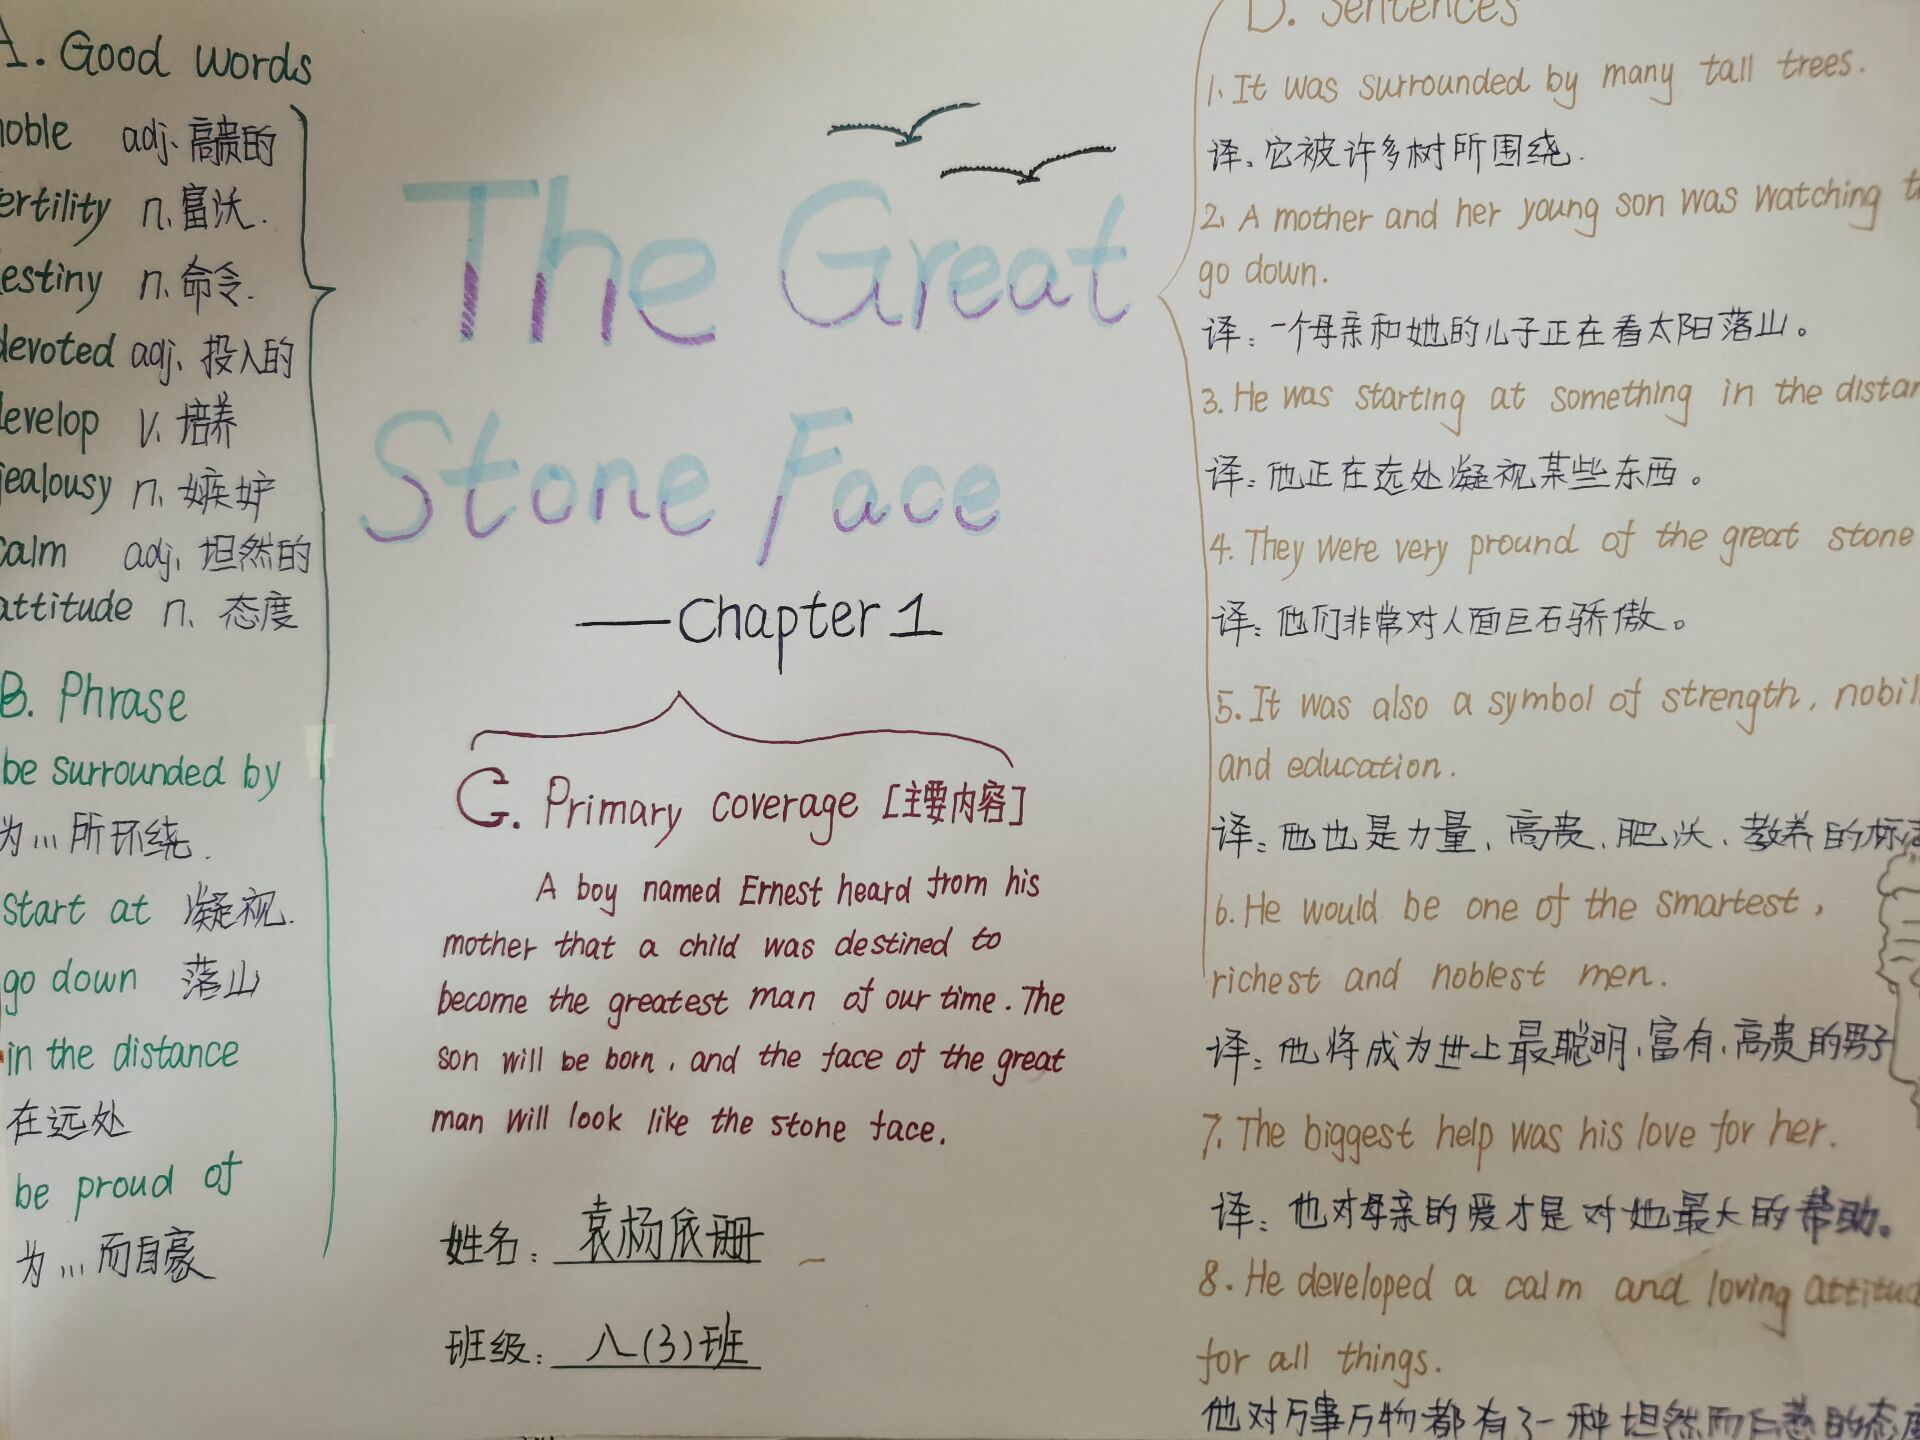 A. Good words
noble adj. 高贵的
fertility n. 富沃.
destiny n. 命令.
devoted adj. 投入的
develop v. 培养
jealousy n. 嫉妒
calm adj. 坦然的
attitude n. 态度
B. Phrase
be surrounded by
为...所环绕.
start at 凝视.
go down 落山
in the distance
在远处
be proud of
为...而自豪
The Great
Stone Face
——Chapter 1
C. Primary coverage [主要内容]
A boy named Ernest heard from his
mother that a child was destined to
become the greatest man of our time. The
son will be born, and the face of the great
man will look like the stone face.
姓名: 袁杨依珊
班级: 八(3)班
D. Sentences
1. It was surrounded by many tall trees.
译: 它被许多树所围绕.
2. A mother and her young son was watching
go down.
译: 一个母亲和她的儿子正在看太阳落山。
3. He was starting at something in the distan
译: 他正在远处凝视某些东西。
4. They were very pround of the great stone
译: 他们非常对人面巨石骄傲。
5. It was also a symbol of strength, nobil
and education.
译: 他也是力量、高贵、肥沃、教养的标
6. He would be one of the smartest,
richest and noblest men.
译: 他将成为世上最聪明、富有、高贵的男子
7. The biggest help was his love for her.
译: 他对母亲的爱才是对她最大的帮助。
8. He developed a calm and loving attitud
for all things.
他对万事万物都有了一种坦然而仁慈的态度